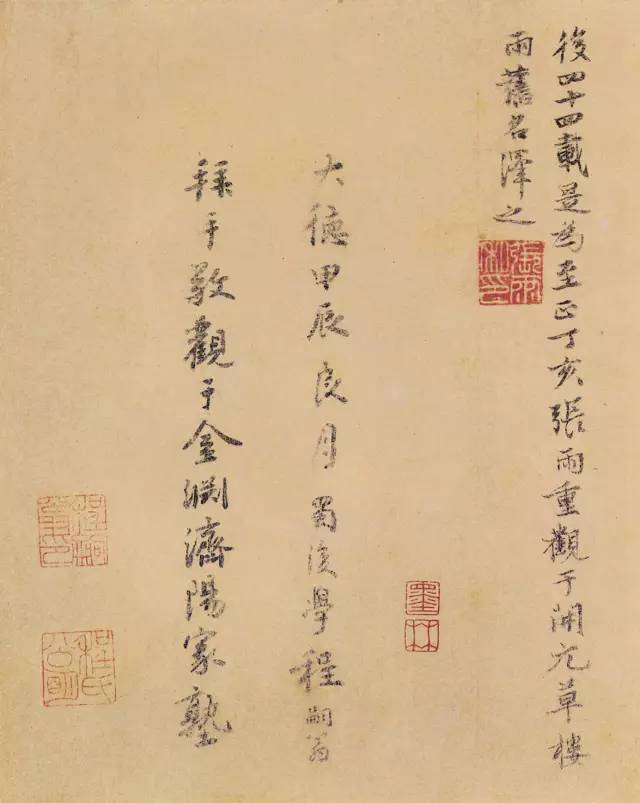 後四十四載是為至正丁亥張雨重觀于開元草樓
雨舊名澤之
墨林
大德甲辰良月蜀後學程嗣翁
拜手敬觀于金淵濟陽家塾